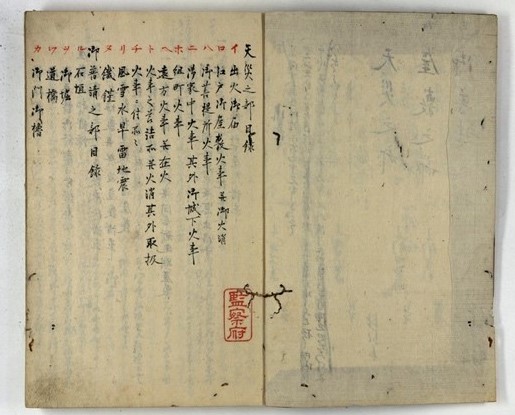 天災之部目録
イ 出火御届
ロ 江戸御屋敷火事并御火消
ハ 御菩提所火事
ニ 御家中火事其外御城下火事
ホ 町火事
ヘ 遠方火事并在火
ト 火事之 并火消其外取扱
チ 火事之
リ 風雪水旱雷地震
ヌ 饑饉
御普請之部目録
ル 石垣
ヲ 御
ワ 道橋
カ 御門御
監察府